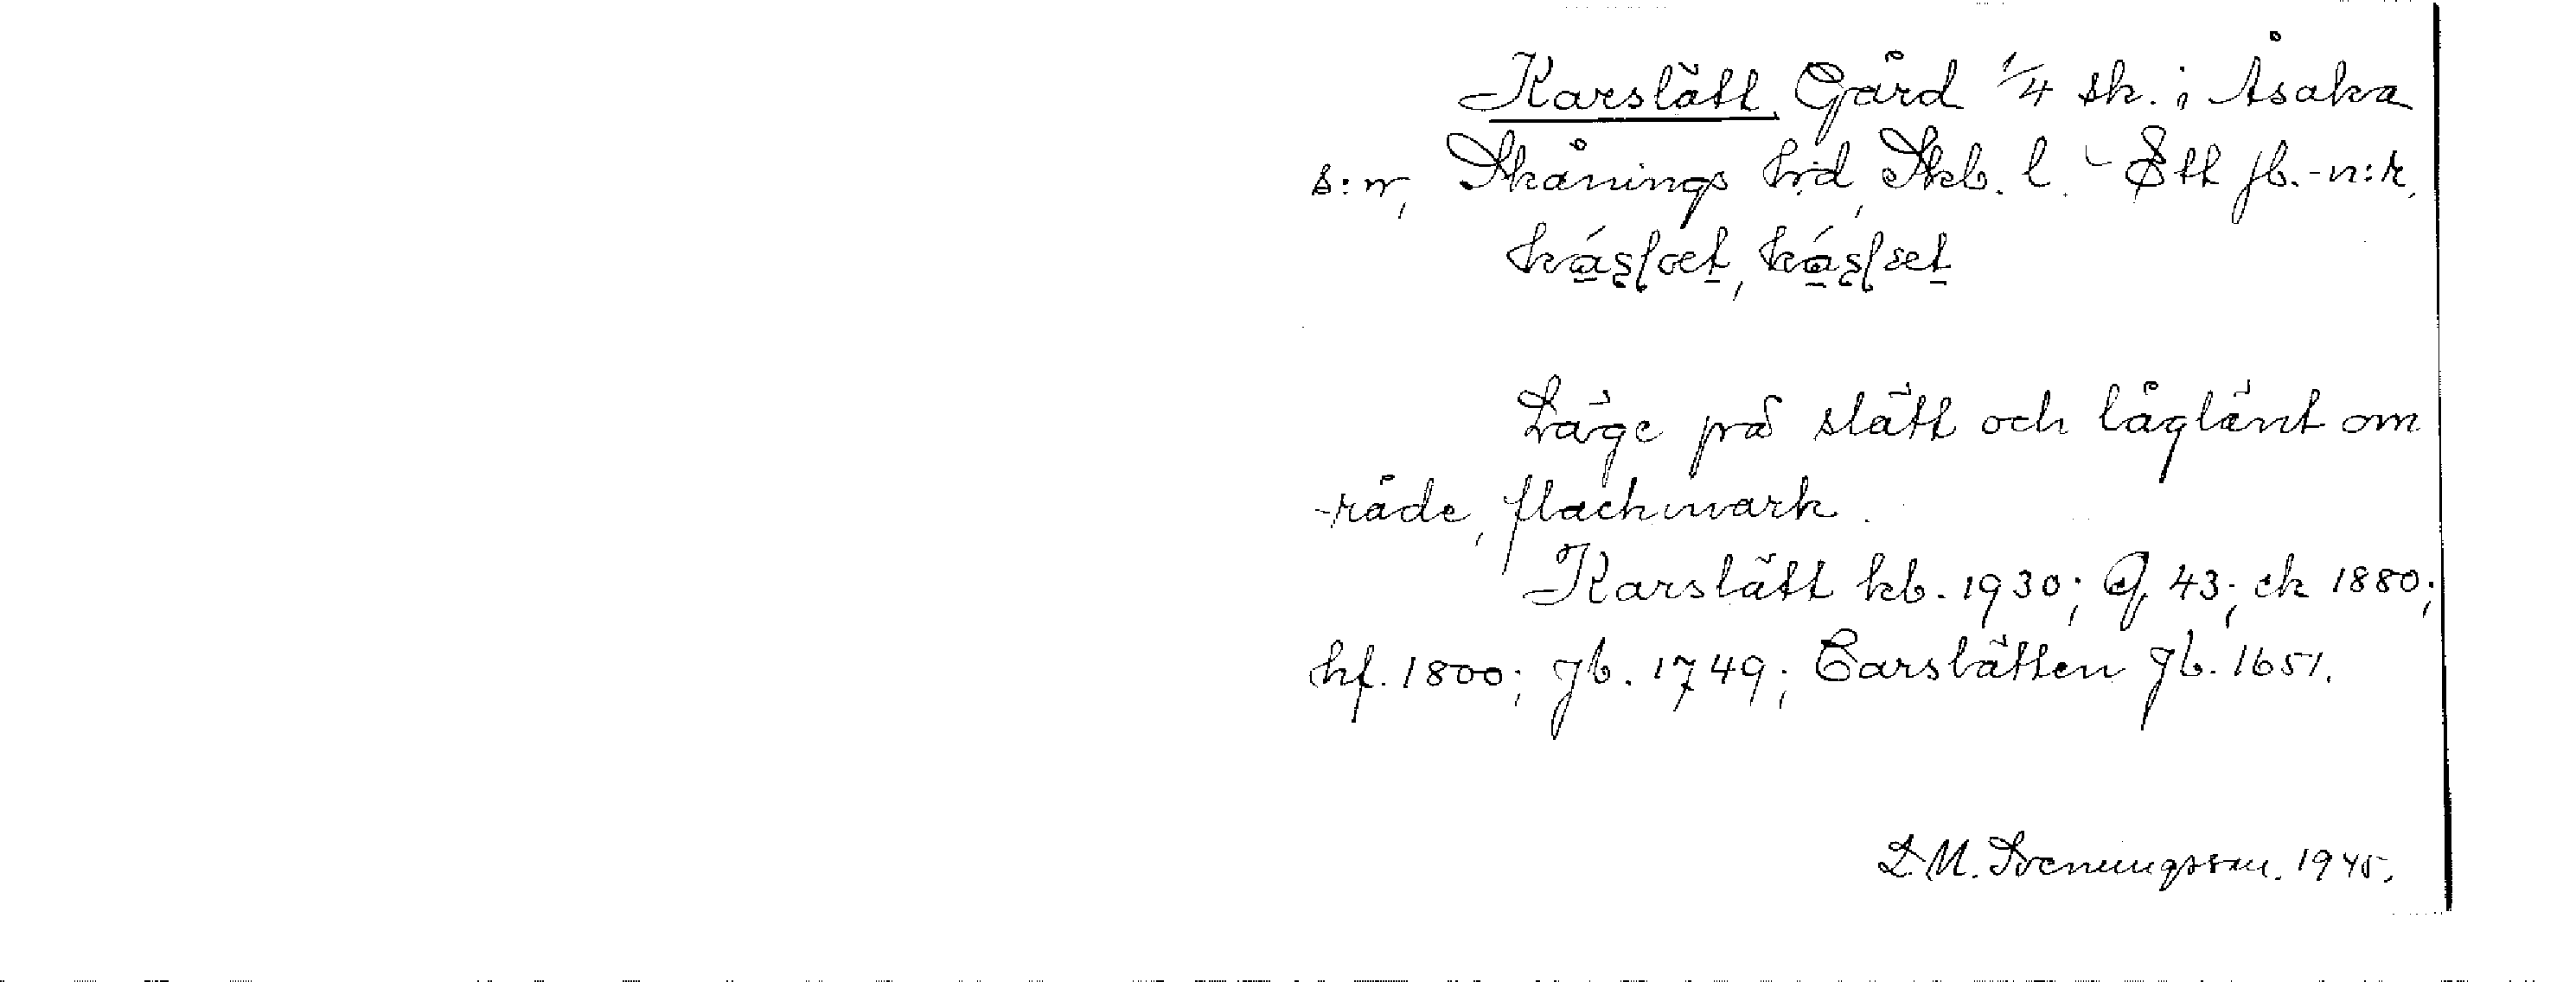 Karslätt, Gård 1/4 sk. i Åsaka
s:n, Skånings hd, Skb. l. - Ett jb.-n:r.
Läge på slätt och låglänt om
-råde, flackmark.
Karslätt kb. 1930; GJ 43; ek 1880;
hf. 1800; Jb. 1749; Carslätten Jb. 1651.
D. M. Svenungsson. 1945.